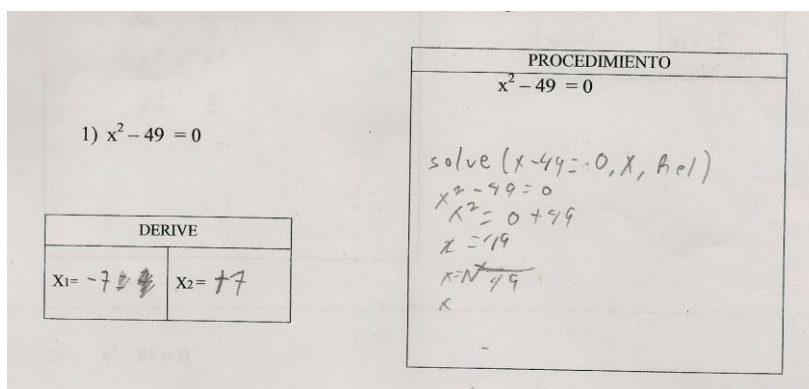 1) x² – 49 = 0
DERIVE
X1= -7
X2= +7
PROCEDIMIENTO
x² – 49 = 0
solve (x-49=0, X, Rel)
x²-49=0
x²= 0+49
x =49
x=√49
x